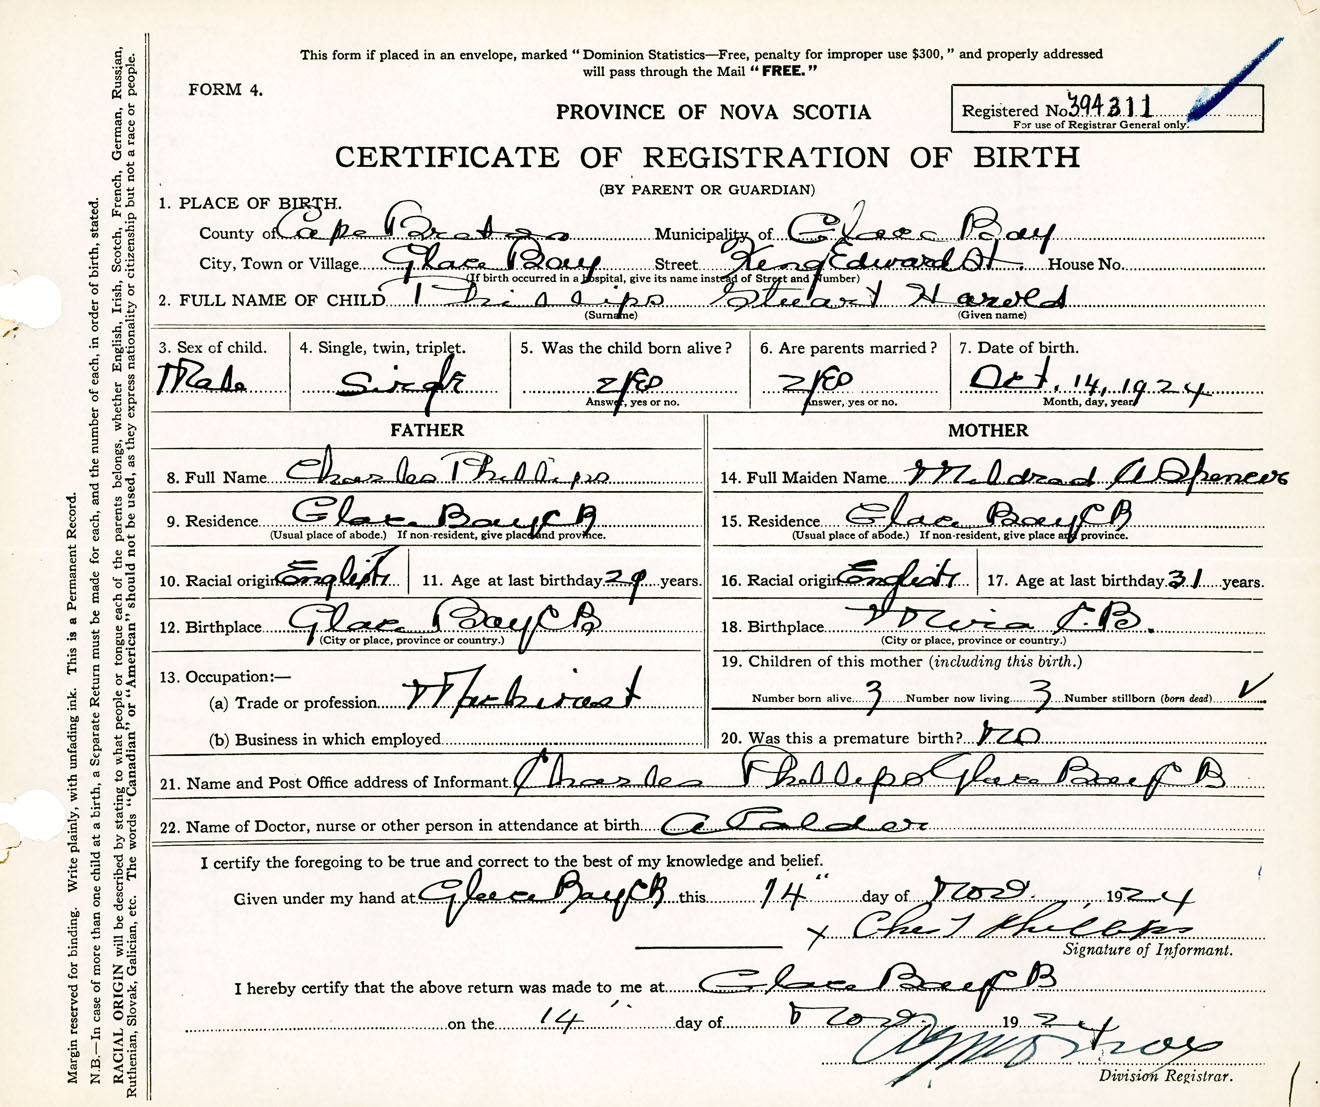 This form if placed in an envelope, marked "Dominion Statistics—Free, penalty for improper use $300," and properly addressed
will pass through the Mail "FREE."
FORM 4.
PROVINCE OF NOVA SCOTIA
Registered No. 394311
For use of Registrar General only.
CERTIFICATE OF REGISTRATION OF BIRTH
(BY PARENT OR GUARDIAN)
1. PLACE OF BIRTH.
County of Cape Breton Municipality of Glace Bay
City, Town or Village Glace Bay Street King Edward St. House No.
(If birth occurred in a hospital, give its name instead of Street and Number)
2. FULL NAME OF CHILD Phillips Stuart Harold
(Surname) (Given name)
3. Sex of child. 4. Single, twin, triplet. 5. Was the child born alive? 6. Are parents married? 7. Date of birth.
Male Single yes yes Oct. 14, 1924
Answer, yes or no. Answer, yes or no. Month, day, year
FATHER MOTHER
8. Full Name Charles Phillips 14. Full Maiden Name Mildred A Spencer
9. Residence Glace Bay C B 15. Residence Glace Bay C B
(Usual place of abode.) If non-resident, give place and province. (Usual place of abode.) If non-resident, give place and province.
10. Racial origin English 11. Age at last birthday 29 years. 16. Racial origin English 17. Age at last birthday 31 years.
12. Birthplace Glace Bay C B 18. Birthplace Mira C.B.
(City or place, province or country.) (City or place, province or country.)
13. Occupation:— 19. Children of this mother (including this birth.)
(a) Trade or profession Machinist Number born alive 3 Number now living 3 Number stillborn (born dead) ✓
(b) Business in which employed 20. Was this a premature birth? No
21. Name and Post Office address of Informant Charles Phillips Glace Bay C B
22. Name of Doctor, nurse or other person in attendance at birth A Calder
I certify the foregoing to be true and correct to the best of my knowledge and belief.
Given under my hand at Glace Bay C B this 14" day of Nov. 1924
x Chas T Phillips
Signature of Informant.
I hereby certify that the above return was made to me at Glace Bay C B
on the 14" day of Nov. 1924
Division Registrar.
Margin reserved for binding. Write plainly, with unfading ink. This is a Permanent Record.
N.B.—In case of more than one child at a birth, a Separate Return must be made for each, and the number of each, in order of birth, stated.
RACIAL ORIGIN will be described by stating to what people or tongue each of the parents belongs, whether English, Irish, Scotch, French, German, Russian,
Ruthenian, Slovak, Galician, etc. The words "Canadian" or "American" should not be used, as they express nationality or citizenship but not a race or people.